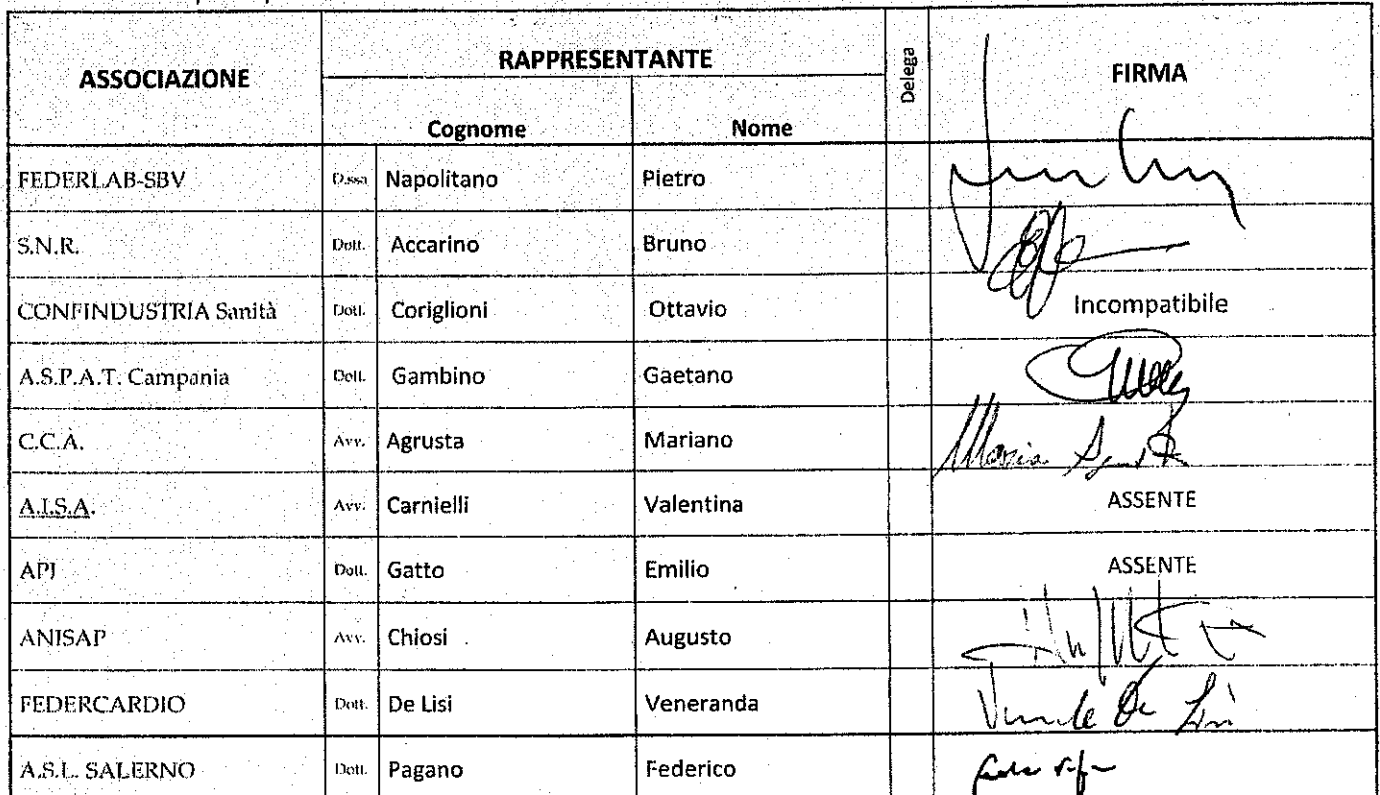 ASSOCIAZIONE RAPPRESENTANTE Delega FIRMA
Cognome Nome
FEDERLAB-SBV D.ssa Napolitano Pietro
S.N.R. Dott. Accarino Bruno
CONFINDUSTRIA Sanità Dott. Coriglioni Ottavio Incompatibile
A.S.P.A.T. Campania Dott. Gambino Gaetano
C.C.A. Avv. Agrusta Mariano
A.I.S.A. Avv. Carnielli Valentina ASSENTE
API Dott. Gatto Emilio ASSENTE
ANISAP Avv. Chiosi Augusto
FEDERCARDIO Dott. De Lisi Veneranda
A.S.L. SALERNO Dott. Pagano Federico